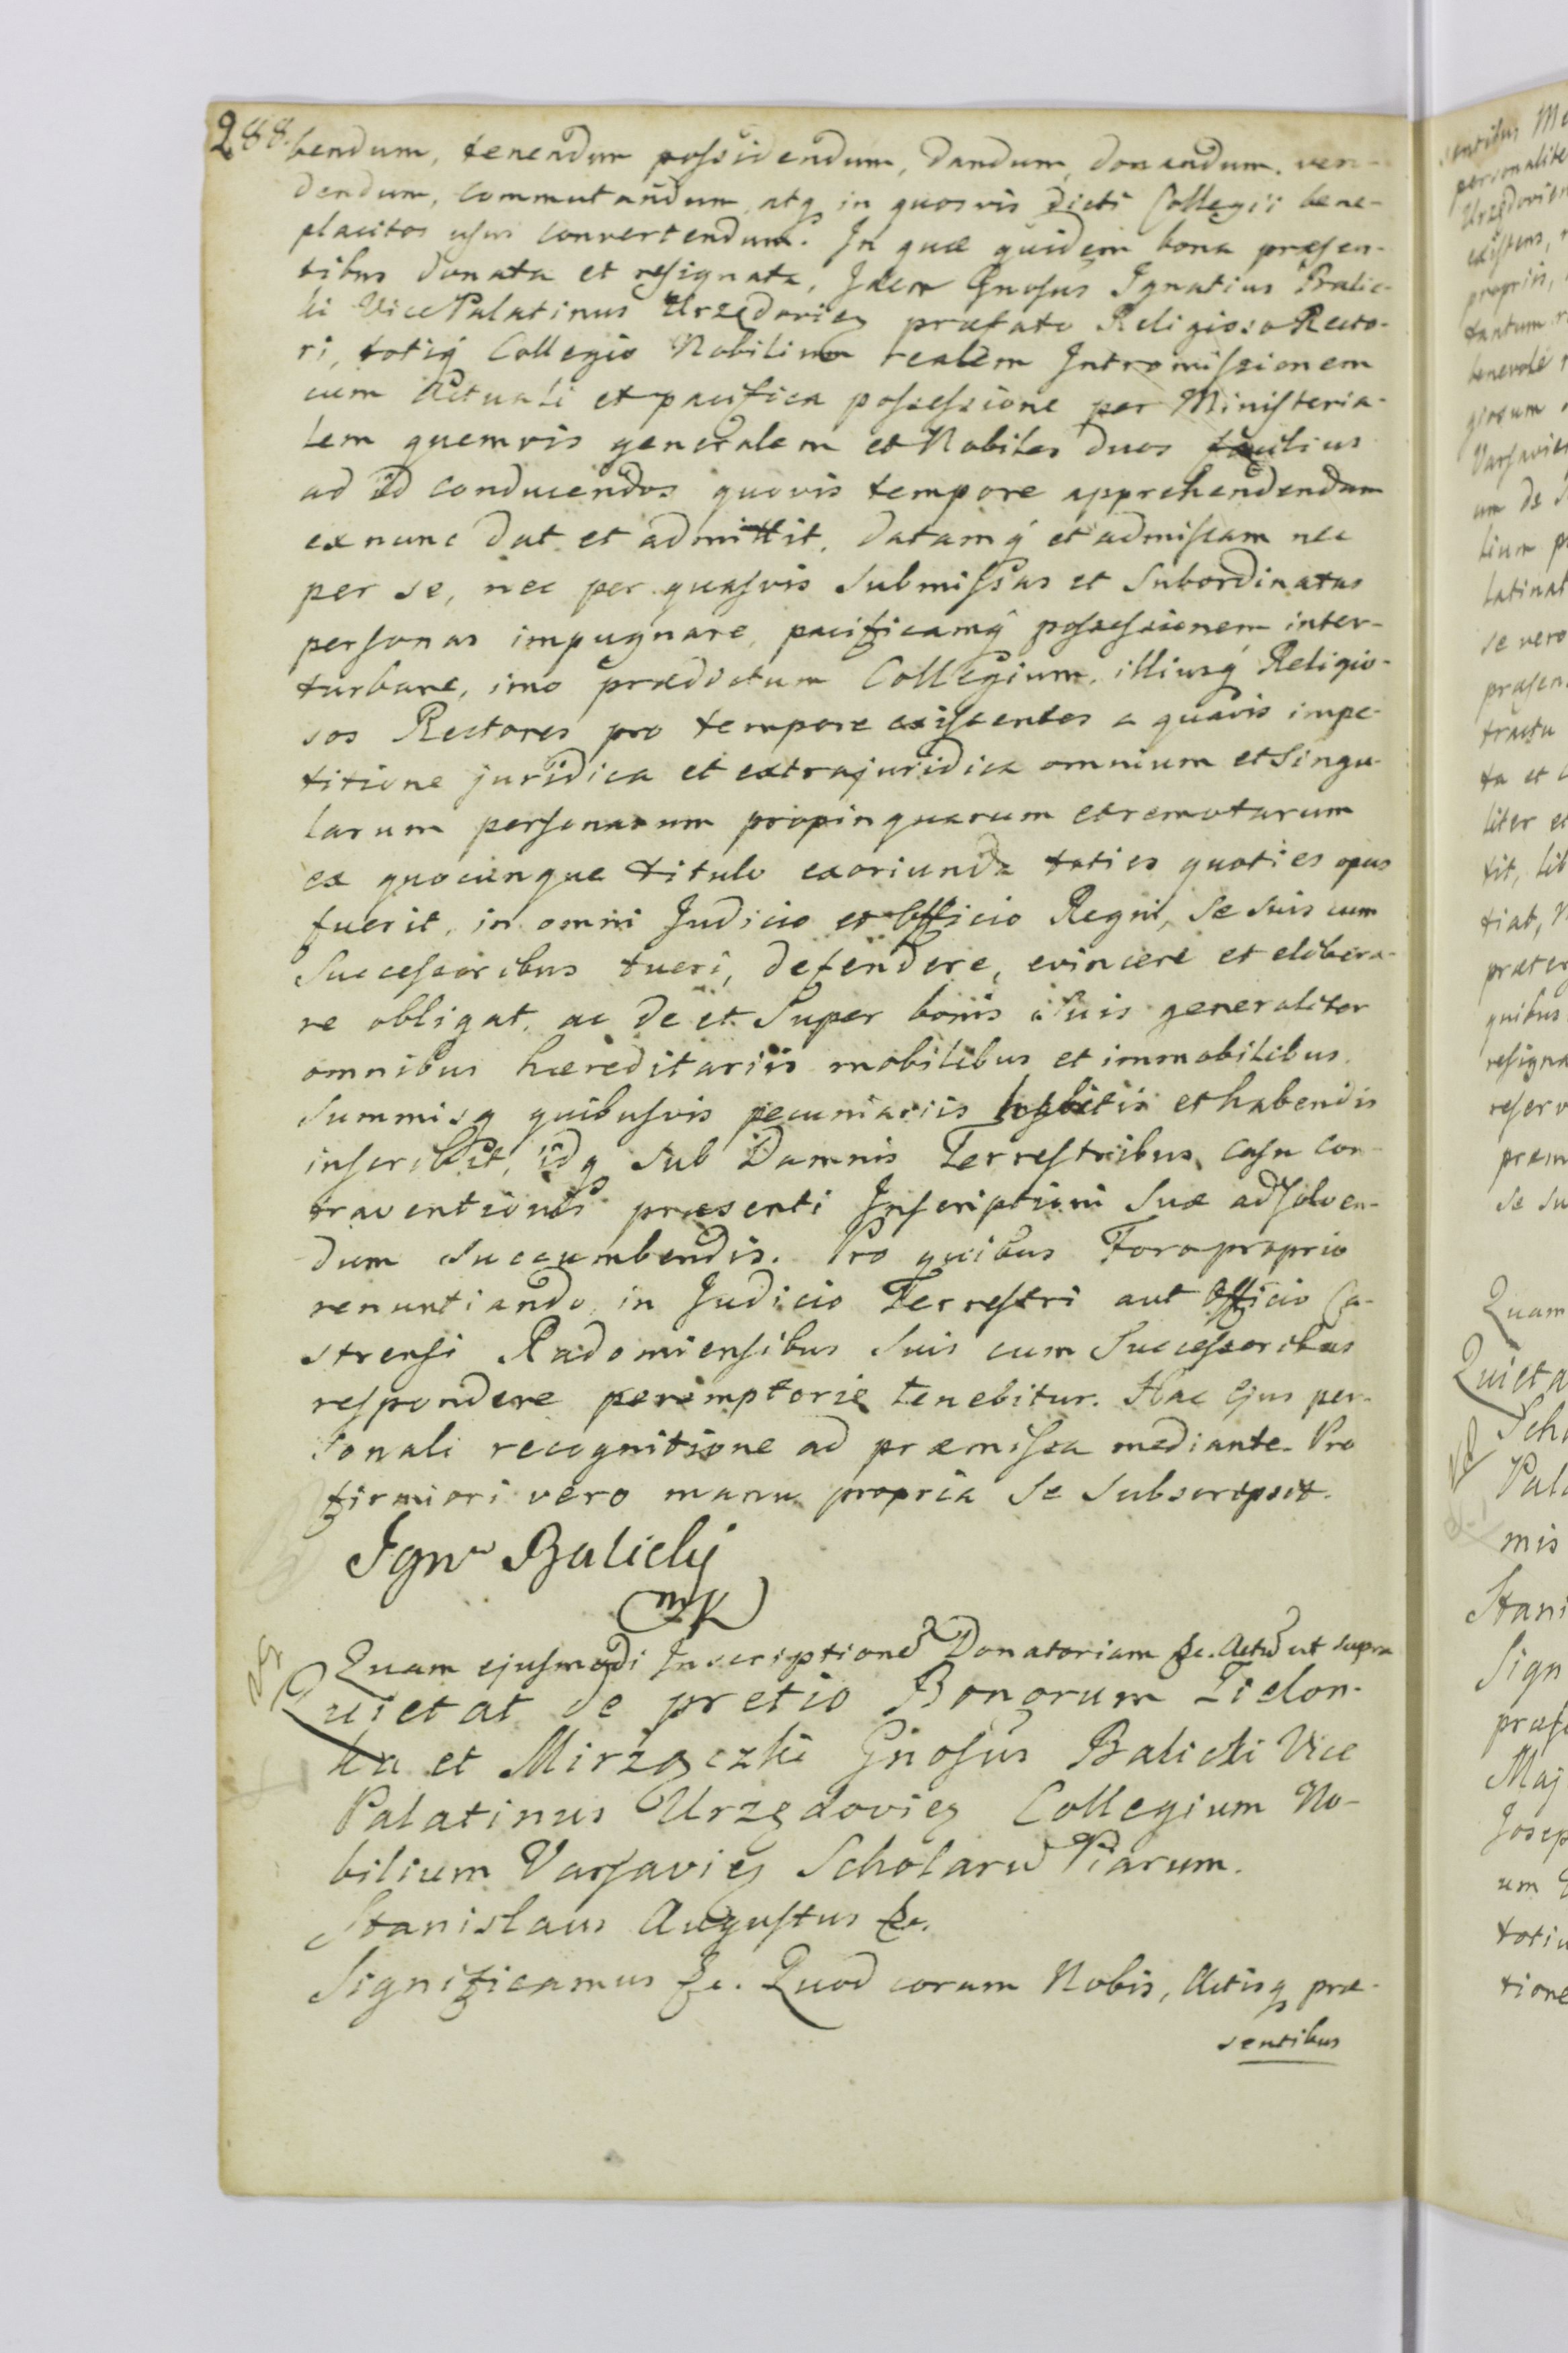 288.
bendum, tenendum possidendum, dandum, donandum, ven-
dendum, commutandum, atq in quosvis dicti Collegii bene-
placitos usus convertendum. In quæ quidem bona præsen-
tibus donata et resignata, Idem Gnosus Ignatius Balic-
ki Vice Palatinus Urzędovien præfato Religioso Recto-
ri, totiq Collegio Nobilium realem Intromissionem
cum actuali et pacifica possessione per Ministeria-
lem quemvis generalem et Nobiles duos facilius
ad id conducendos quovis tempore apprehendendam
ex nunc dat et admittit, datamq et admissam nec
per se, nec per quasvis submissas et subordinatas
personas impugnare, pacificamq possessionem inter-
turbare, imo prædictum Collegium, illiusq Religio-
sos Rectores pro tempore existentes a quavis impe-
titione juridica et extrajuridica omnium et singu-
larum personarum propinquarum et remotarum
ex quocunque titulo exoriunda toties quoties opus
fuerit, in omni Judicio et Officio Regni, se suis cum
Successoribus tueri, defendere, evincere et elibera-
re obligat, ac de et super bonis suis generaliter
omnibus hæreditariis mobilibus et immobilibus
summisq quibusvis pecuniariis habitis et habendis
inscribit, idq sub Damnis Terrestribus casu con-
traventionis præsenti Inscriptioni suæ adsolven-
dum succumbendis. Pro quibus Foro proprio
renuntiando, in Judicio Terrestri aut Officio Ca-
strensi Radomiensibus suis cum Successoribus
respondere peremptorie tenebitur. Hac Ejus per-
sonali recognitione ad præmissa mediante. Pro
firmiori vero manu propria se subscripsit.
Ign Balicky
mp
Quam ejusmodi Inscriptione Donatoriam &c. Actu ut supra
Quietat de pretio Bonorum Zielon-
ka et Mirzączki Gnosus Balicki Vice
Palatinus Urzędovien Collegium No-
bilium Varsavien Scholaru Piarum.
Stanislaus Augustus &c.
Significamus &c. Quod coram Nobis, Actisq præ-
sentibus